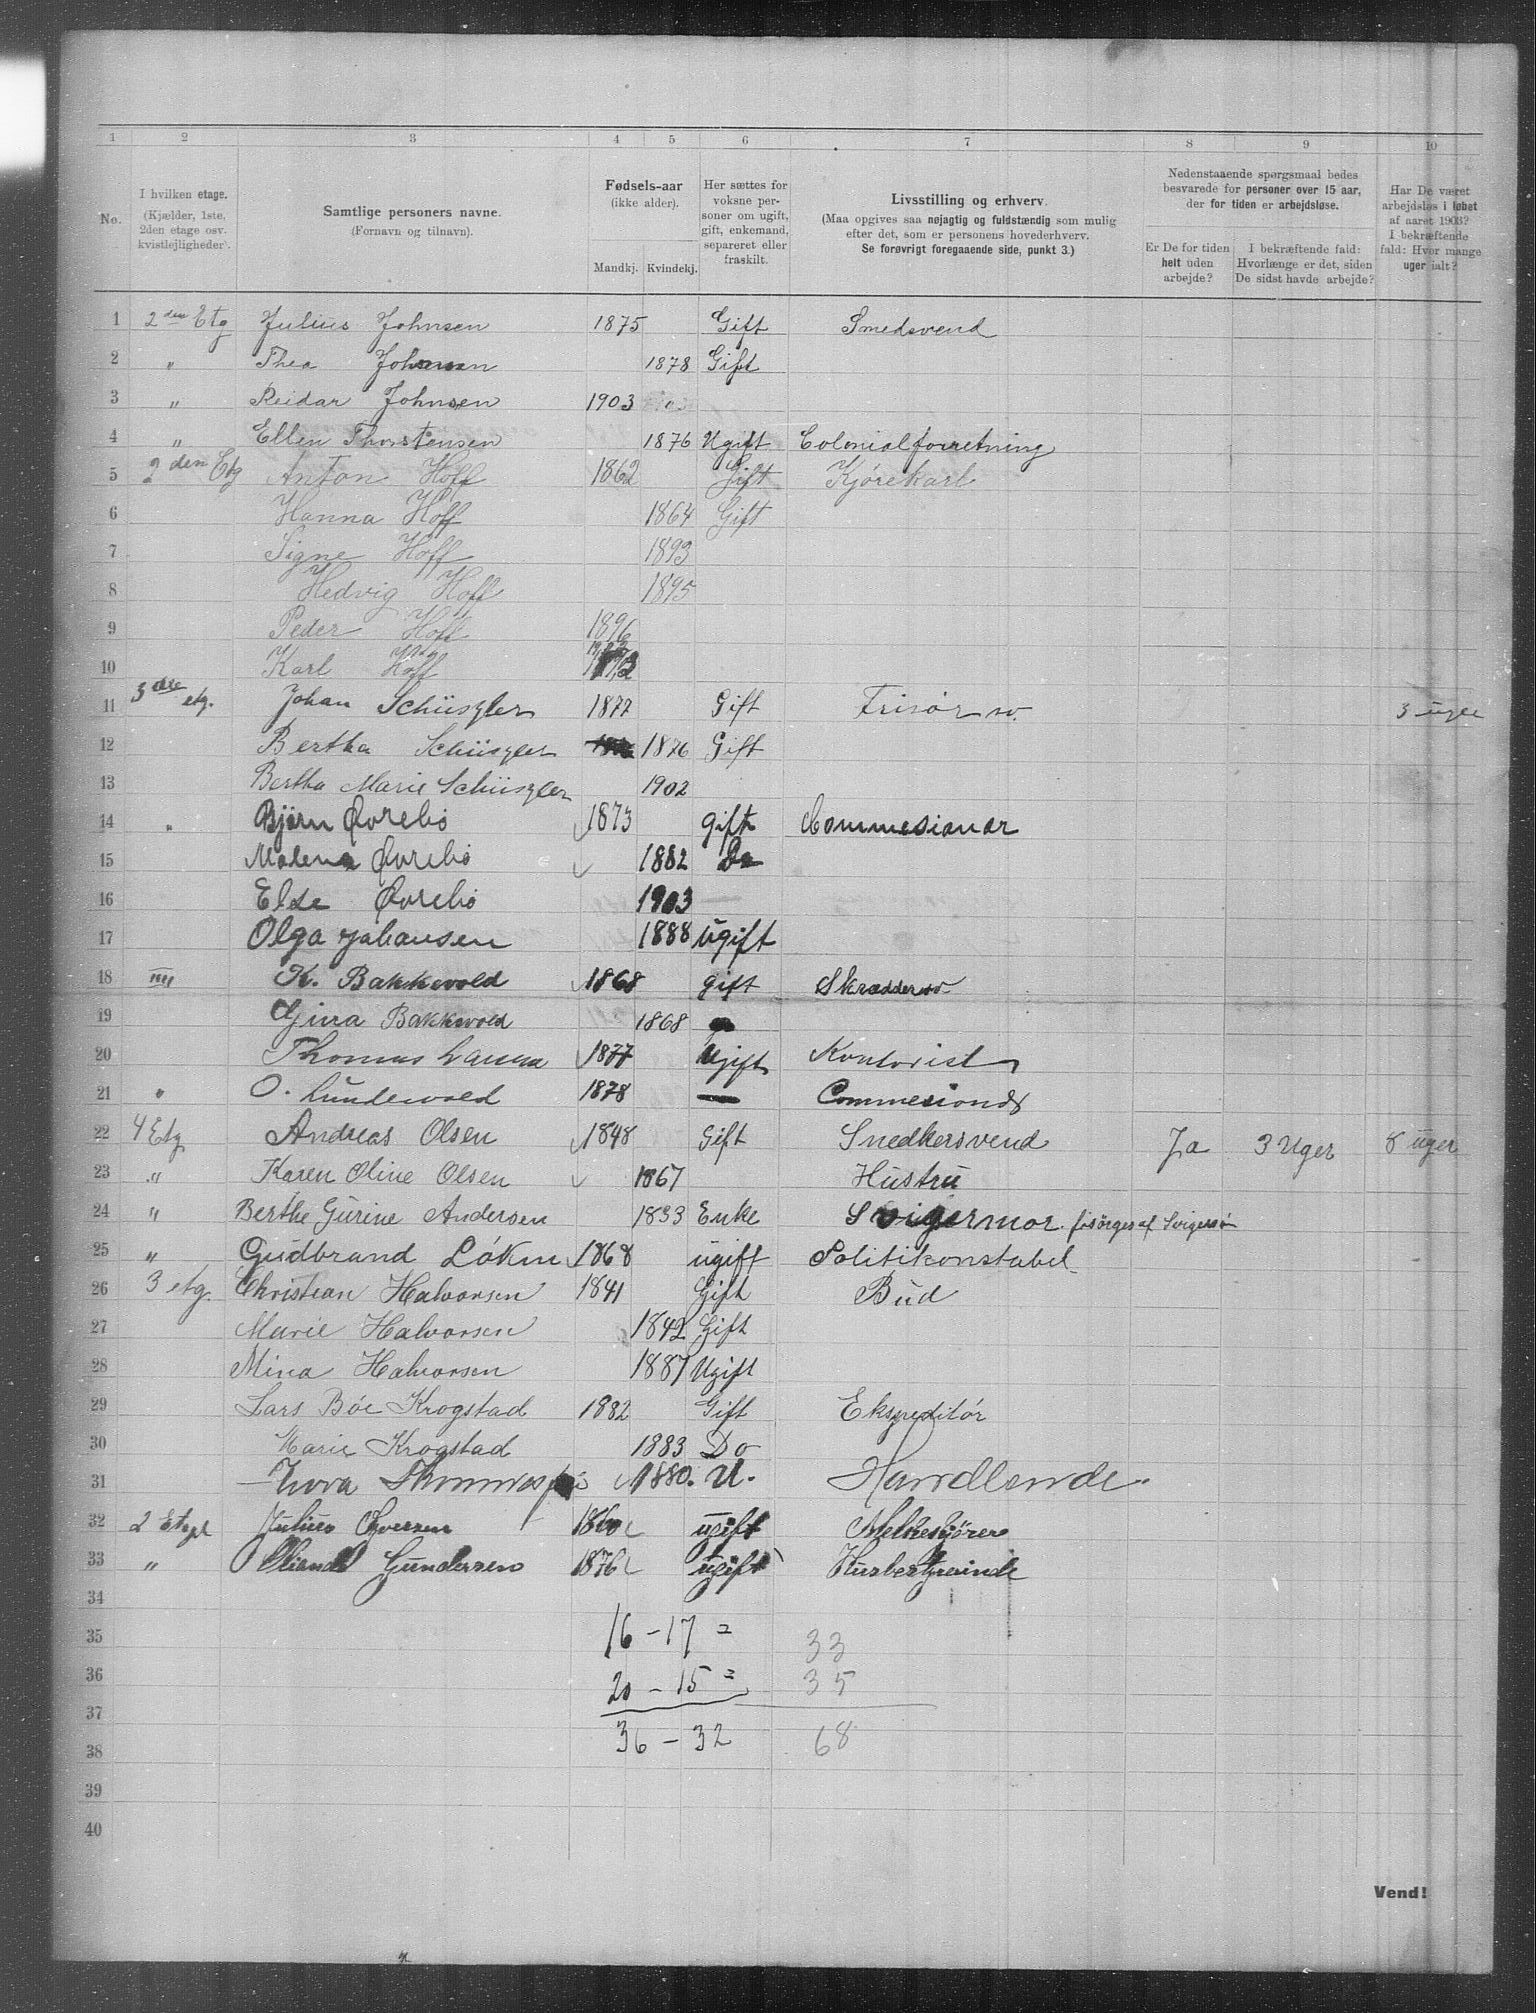 1 2 3 4 5 6 7 8 9 10
No.
I hvilken etage. (Kjælder, 1ste, 2den etage osv. kvistlejligheder).
Samtlige personers navne. (Fornavn og tilnavn).
Fødsels-aar (ikke alder).
Mandkj. Kvindekj.
Her sættes for voksne personer om ugift, gift, enkemand, separeret eller fraskilt.
Livsstilling og erhverv. (Maa opgives saa nøjagtig og fuldstændig som mulig efter det, som er personens hovederhverv. Se forøvrigt foregaaende side, punkt 3.)
Nedenstaaende spørgsmaal bedes besvarede for personer over 15 aar, der for tiden er arbejdsløse.
Er De for tiden helt uden arbejde?
I bekræftende fald: Hvorlænge er det, siden De sidst havde arbejde?
Har De været arbejdsløs i løbet af aaret 1903? I bekræftende fald: Hvor mange uger ialt?
1 2den Etg Julius Johnsen 1875 Gift Smedsvend
2 " Thea Johnsen 1878 Gift
3 " Reidar Johnsen 1903
4 " Ellen Thorstensen 1876 Ugift Colonialforretning
5 2den Etg Anton Hoff 1862 Gift Kjørekarl
6 Hanna Hoff 1864 Gift
7 Signe Hoff 1893
8 Hedvig Hoff 1895
9 Peder Hoff 1896
10 Karl Hoff
11 3die etg. Johan Schüszler 1877 Gift Frisør sv. 3 uger
12 Bertha Schüszler 1876 Gift
13 Bertha Marie Schüszler 1902
14 " Bjørn Øvrebø 1873 gift Commesionær
15 Malena Øvrebø 1882 Do
16 Else Øvrebø 1903 —
17 Olga Johansen 1888 ugift
18 "" K. Bakkevold 1868 gift Skræddersv.
19 Gina Bakkevold 1868
20 Thomas 1877 Ugift Kontorist
21 " O. Lundevold 1878 —
22 4 Etg Andreas Olsen 1848 Gift Snedkersvend Ja 3 Uger 8 uger
23 " Karen Oline Olsen 1867 Hustru
24 " Berthe Gurine Andersen 1833 Enke Svigermor. forsørges af Svigersøn
25 " Gudbrand Løken 1868 ugift Politikonstabel
26 3 etg. Christian Halvorsen 1841 Gift Bud
27 Marie Halvorsen 1842 Gift
28 Mina Halvorsen 1887 Ugift
29 Lars Bøe Krogstad 1882 Gift Ekspeditør
30 Marie Krogstad 1883 Do
31 1880. U. Handlende
32 2 Etage Julius 1860 ugift Melkekjører
33 " Gundersen 1876 ugift
34
35 16 – 17 = 33
36 20 – 15 = 35
37
38 36 – 32 68
39
40
Vend!